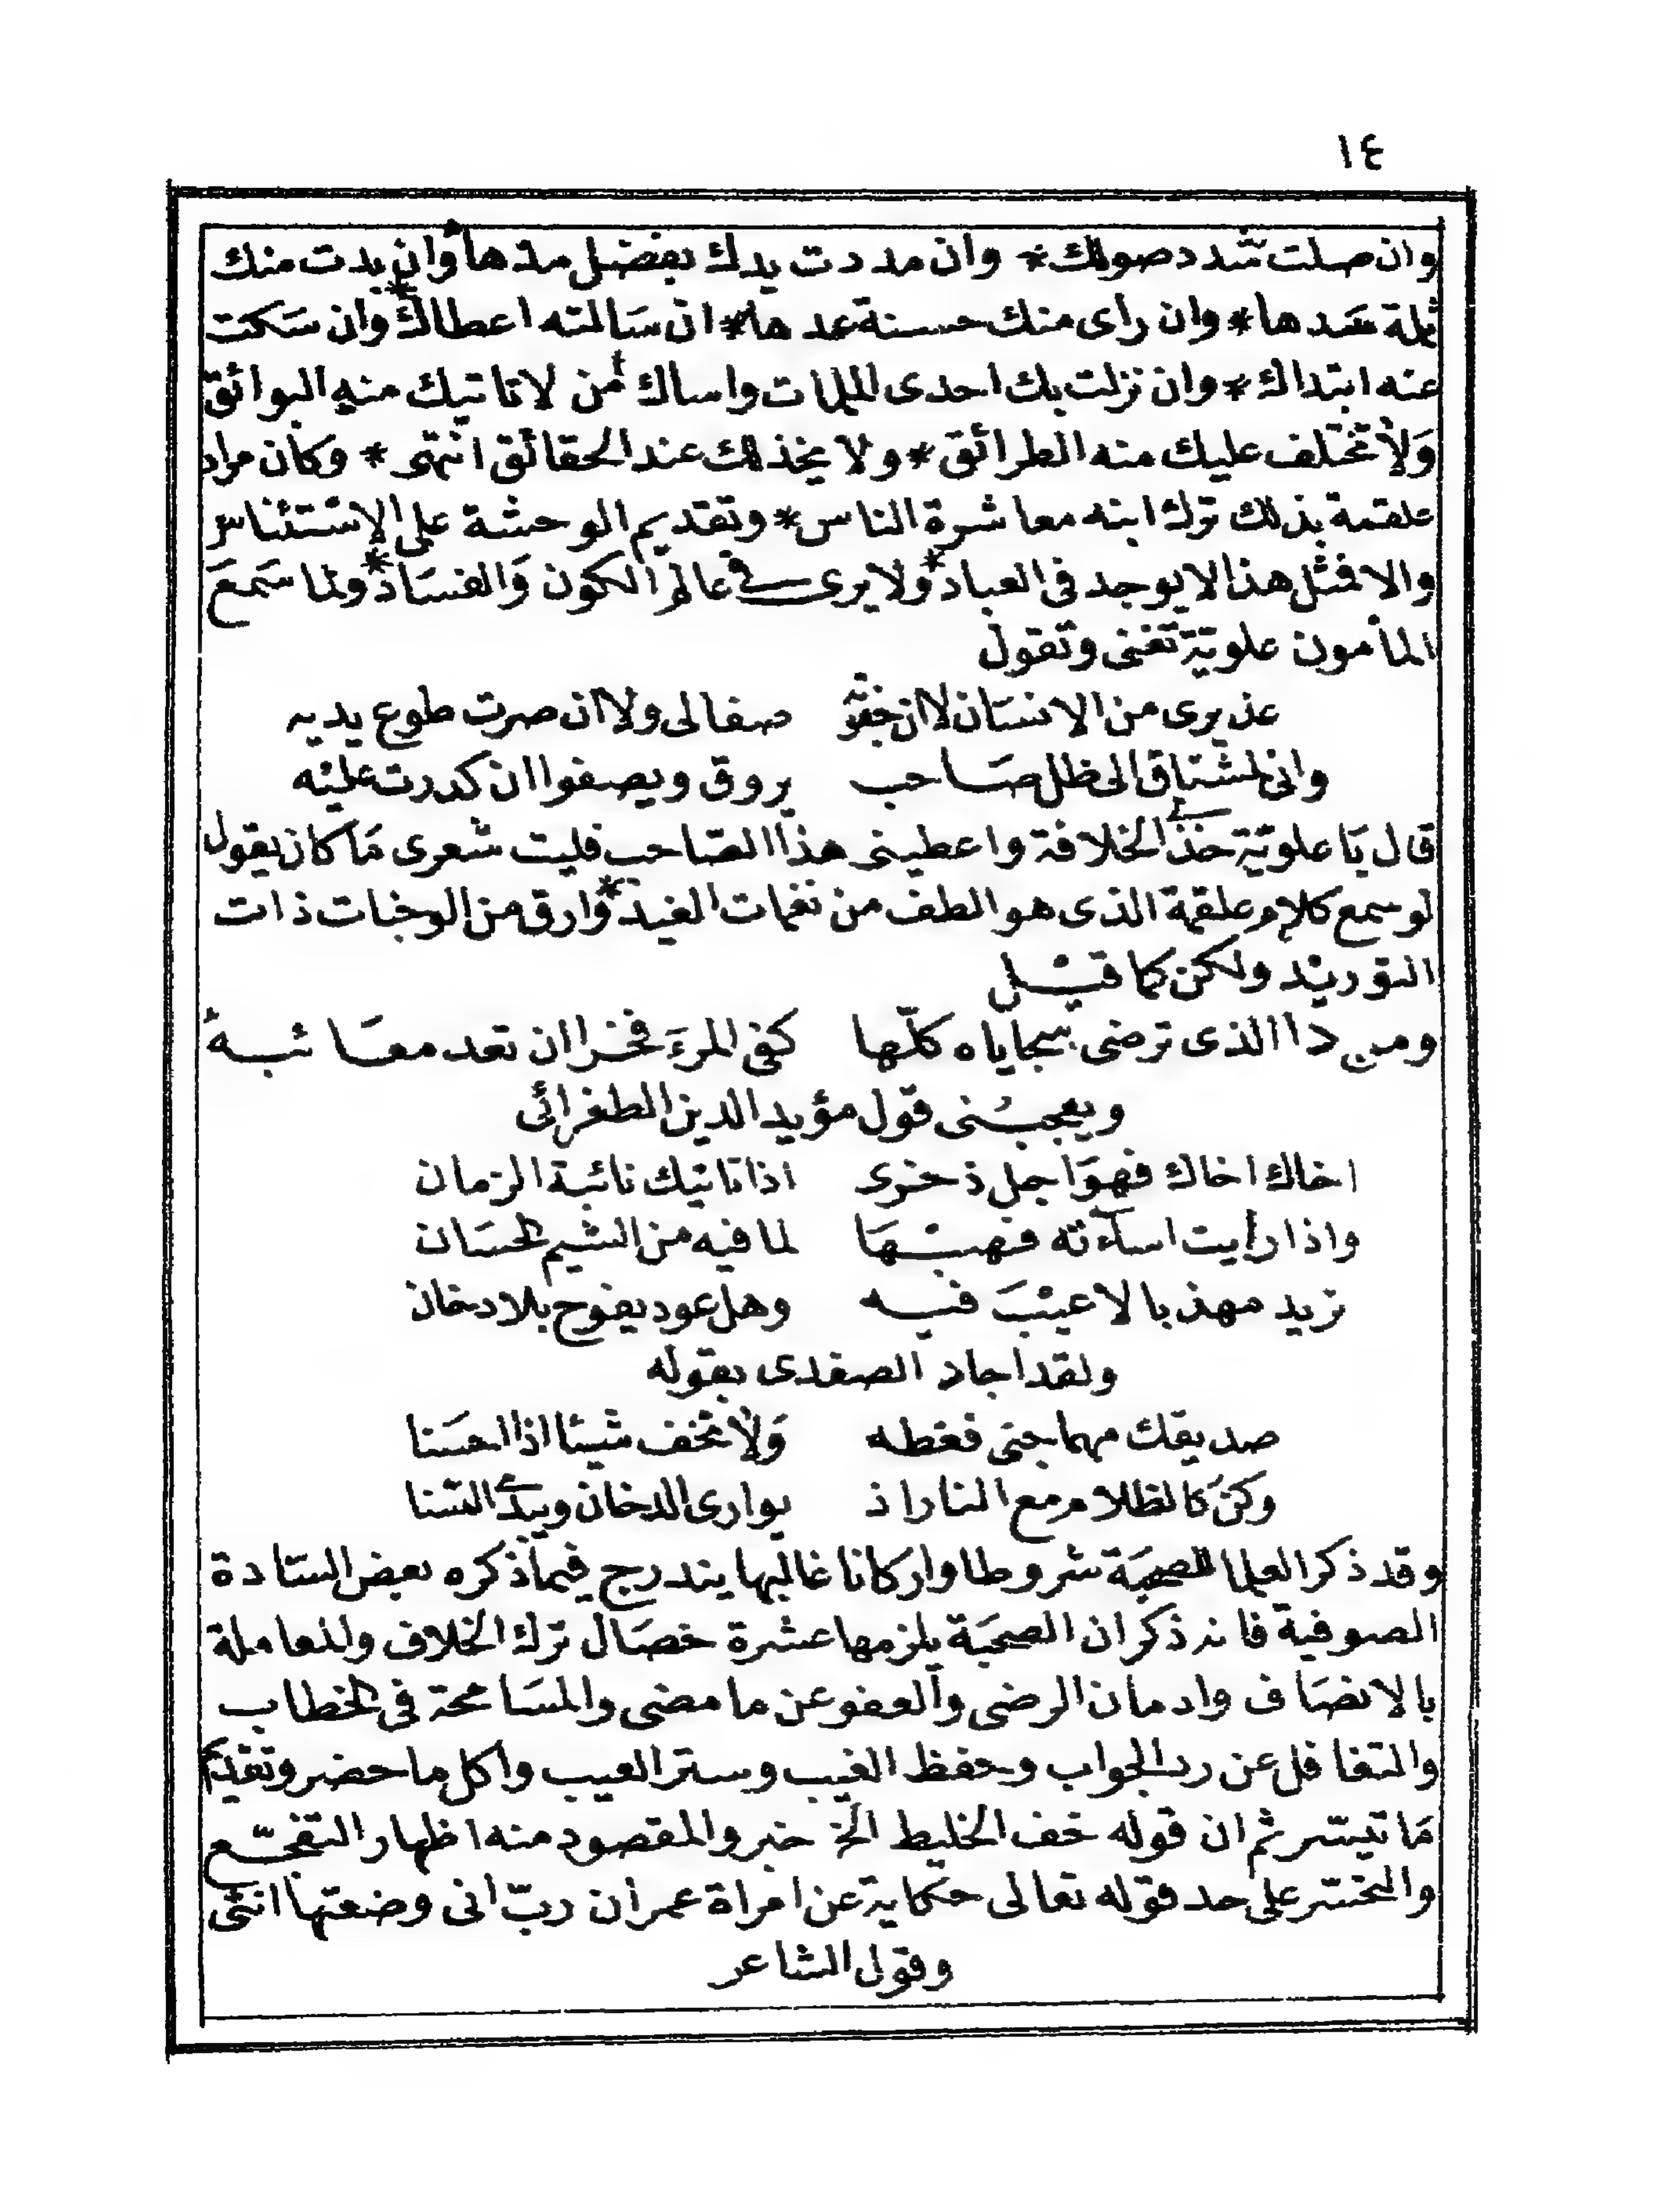 ١٤
وان صلت شدد صولك * وان مددت يدك بفضل مدها * وان بدت منك
ثلمة سدها * وان راى منك حسنة عدها * ان سالمته اعطاك * وان سكت
عنه ابتداك * وان نزلت بك احدى الملمات واساك * من لا تاتيك منه البوائق
ولا تختلف عليك منه الطرائق * ولا يخذلك عند الحقائق انتهى * وكان مراد
علقمة بذلك ترك ابنه معاشرة الناس * وتقديم الوحشة على الاستئناس
والا فمثل هذا لا يوجد فى العباد * ولا يرى فى عالم الكون والفساد * ولما سمع
المأمون علوية تغنى وتقول
عذيرى من الانسان لا ان جفوته صفا لى ولا ان صرت طوع يديه
وانى لمشتاق الى ظل صاحب يروق ويصفوا ان كدرت عليه
قال يا علوية خذى الخلافة واعطينى هذا الصاحب فليت شعرى ما كان يقول
لو سمع كلام علقمة الذى هو الطف من نغمات الغيد * وارق من الوجنات ذات
التوريد ولكن كما قيل
ومن ذا الذى ترضى سجاياه كلها كفى المرء فخرا ان تعد معائبه
ويعجبنى قول مؤيد الدين الطغرائى
اخاك اخاك فهو اجل ذخرى اذا تاتيك نائبة الزمان
واذا رأيت اساءته فهبها لما فيه من الشيم الحسان
تريد مهذبا لا عيب فيه وهل عود يفوح بلا دخان
ولقد اجاد الصفدى بقوله
صديقك مهما جنى فغطه ولا تخف شيئا اذا احسنا
وكن كالظلام مع النار اذ يوارى الدخان ويبدى السنا
وقد ذكر العلما للصحبة شروطا واركانا غالبها يندرج فيما ذكره بعض السادة
الصوفية فانه ذكر ان الصحبة يلزمها عشرة خصال ترك الخلاف والمعاملة
بالانصاف وادمان الرضى والعفو عن ما مضى والمسامحة فى الخطاب
والتغافل عن رد الجواب وحفظ الغيب وستر العيب واكل ما حضر وتقديم
ما تيسر ثم ان قوله خف الخليط الخ خبر والمقصود منه اظهار التفجع
والتحسر على حد قوله تعالى حكاية عن امراة عمران رب انى وضعتها انثى
وقول الشاعر